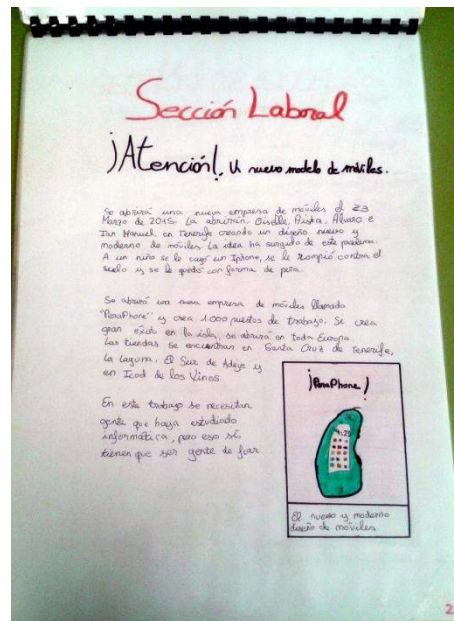 Sección Laboral
¡Atención!, U nuevo modelo de móviles.
Se abrirá una nueva empresa de móviles el 23
Marzo de 2015. La abrirán, Giselle, Álvaro e
Manuel en Tenerife creando un diseño nuevo y
moderno de móviles. La idea ha surgido de este problema.
A un niño se le cayó un Iphone, se le rompió contra el
suelo y se le quedó con forma de pera.
Se abrirá una nueva empresa de móviles llamado
"PeraPhone" y crea 1.000 puestos de trabajo. Se crea
gran éxito en la isla, se abrirá en toda Europa.
Las tiendas se encuentran en Santa Cruz de Tenerife,
La Laguna, El Sur de Adeje y
en Icod de los Vinos
En este trabajo se necesitan
gente que haya estudiado
informática, pero eso sí
tienen que ser gente de fiar
¡PeraPhone!
4:25
El nuevo y moderno
diseño de móviles
2